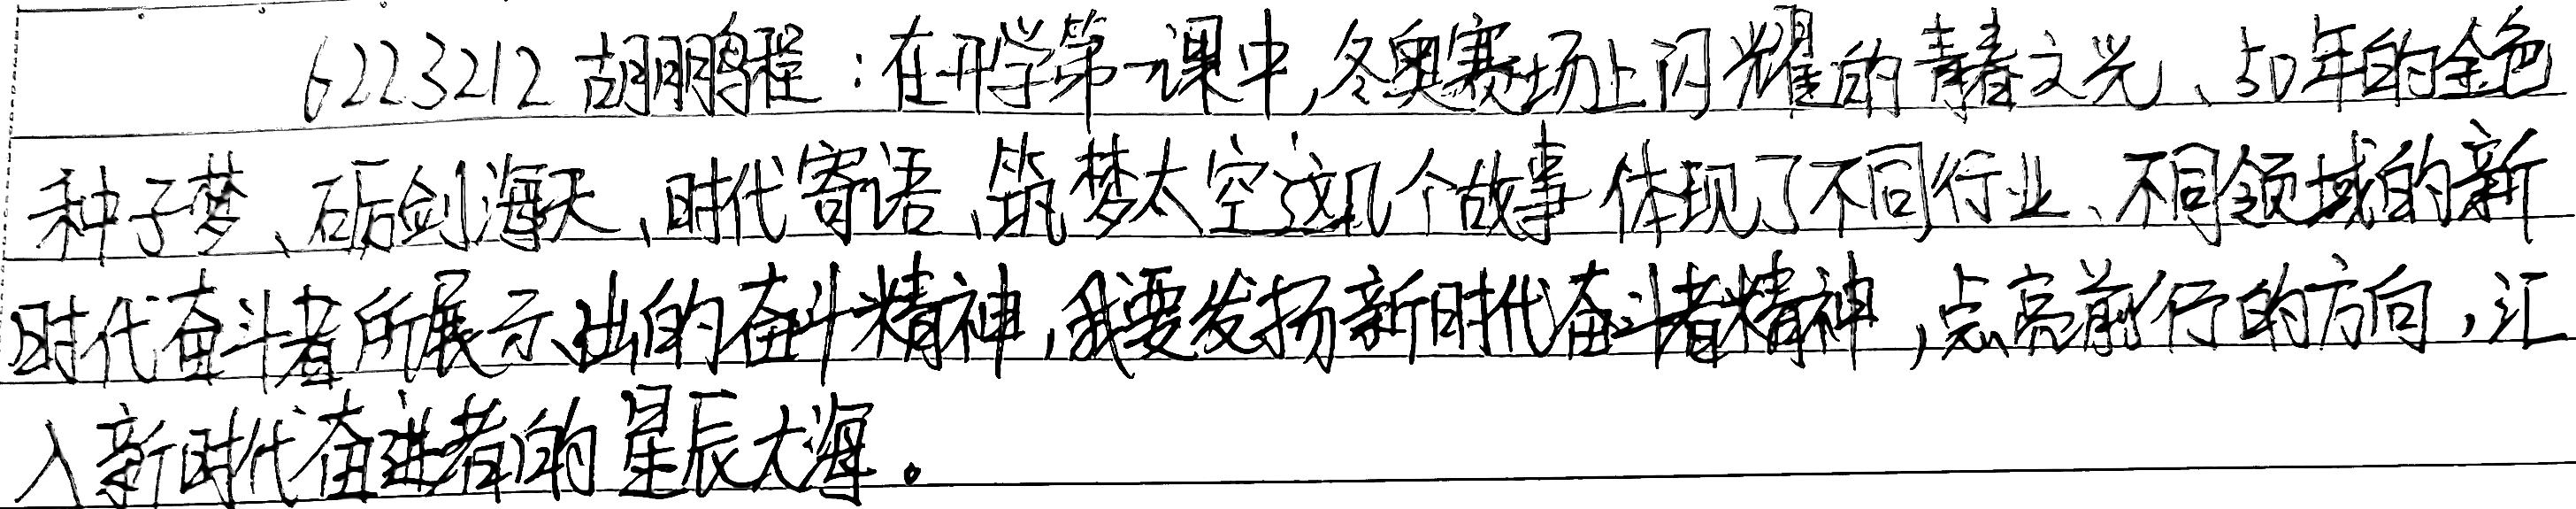 6223212 胡鹏程：在开学第一课中，冬奥赛场上闪耀的青春之光、50年的金色
种子梦、砺剑海天、时代寄语、筑梦太空这几个故事体现了不同行业、不同领域的新
时代奋斗者所展示出的奋斗精神，我要发扬新时代奋斗者精神，点亮前行的方向，汇
入新时代奋进者的星辰大海。